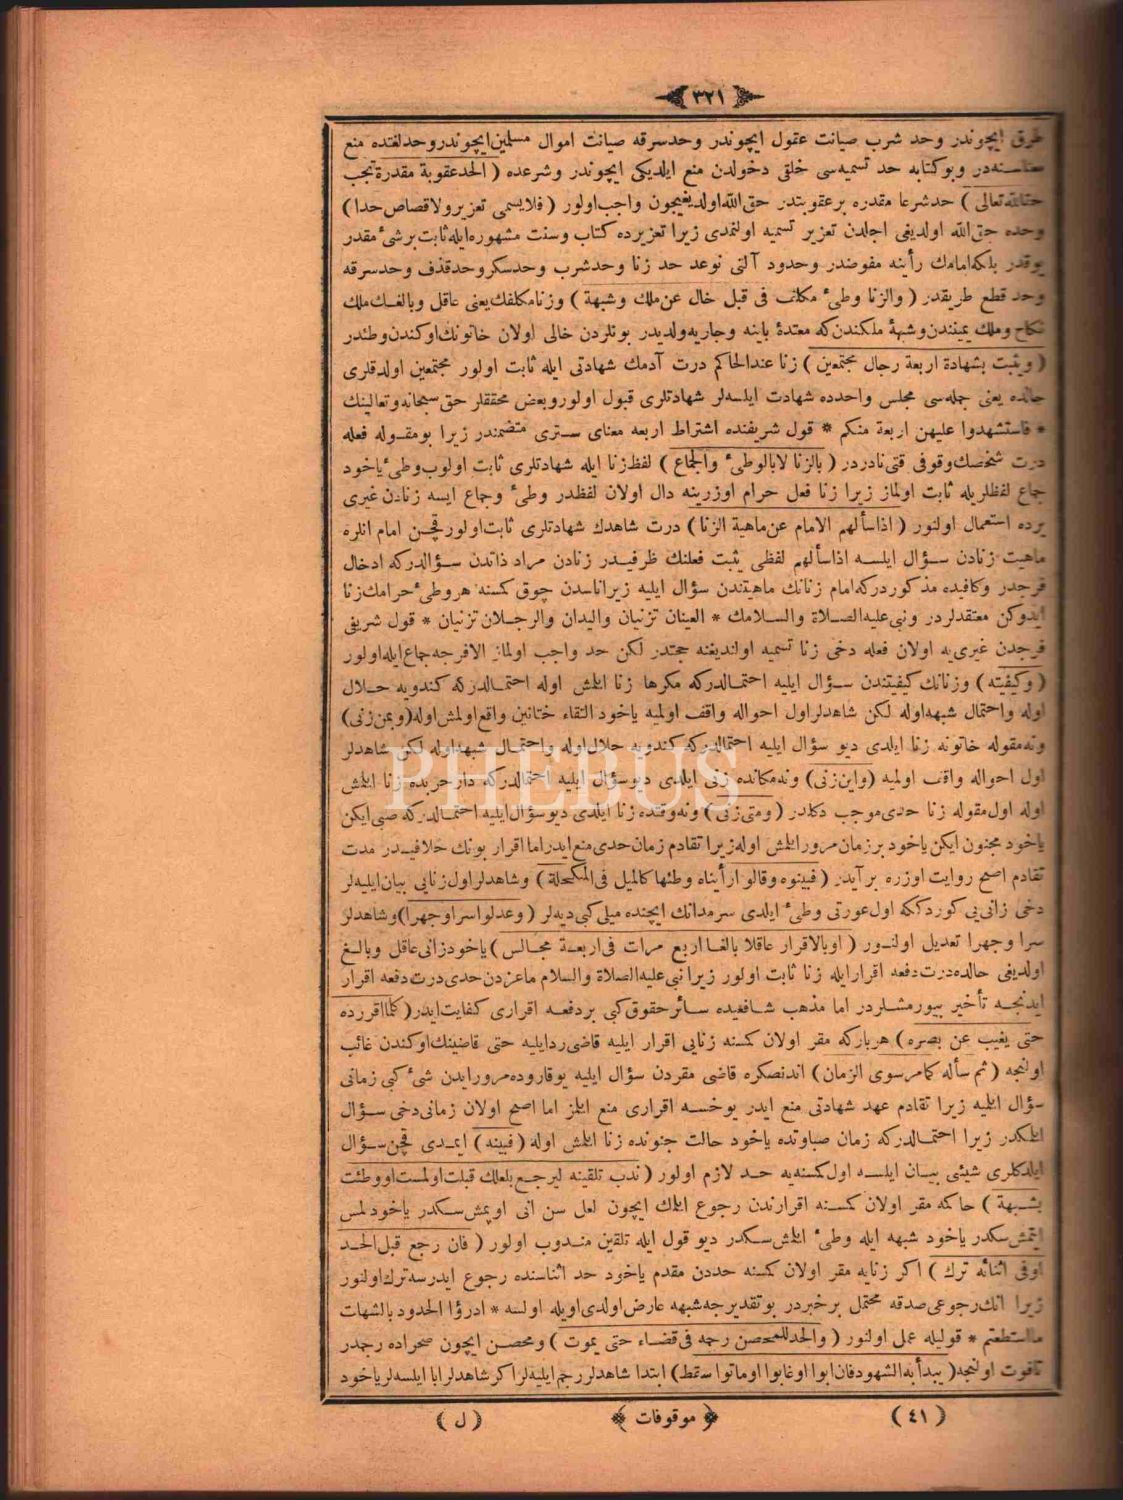 ﴿ ٣٢١ ﴾
عرق ايچوندر وحد شرب صيانت عقول ايچوندر وحد سرقه صيانت اموال مسلمين ايچوندر وحد لغتده منع
معناسنه در وبوكتابه حد تسميه سى خلقى دخولدن منع ايلديكى ايچوندر وشرعده ( الحد عقوبة مقدرة تجب
حقا لله تعالى ) حد شرعا مقدره بر عقوبتدر حق الله اولديغيچون واجب اولور ( فلا يسمى تعزير ولا قصاص حدا )
وحده حق الله اولديغى اجلدن تعزير تسميه اولنمدى زيرا تعزيرده كتاب وسنت مشهوره ايله ثابت برشىء مقدر
يوقدر بلكه امامك رأينه مفوضدر وحدود آلتى نوعد حد زنا وحد شرب وحد سكر وحد قذف وحد سرقه
وحد قطع طريقدر ( والزنا وطىء مكلف فى قبل خال عن ملك وشبهة ) وزنا مكلفك يعنى عاقل وبالغك ملك
نكاح وملك يمينندن وشبهۀ ملكندن كه معتدۀ باينه وجاريه ولديدر بونلردن خالى اولان خاتونك اوكندن وطئدر
( ويثبت بشهادة اربعة رجال مجتمعين ) زنا عند الحاكم درت آدمك شهادتى ايله ثابت اولور مجتمعين اولدقلرى
حالده يعنى جمله سى مجلس واحدده شهادت ايلسه لر شهادتلرى قبول اولور وبعض محققلر حق سبحانه وتعالينك
* فاستشهدوا عليهن اربعة منكم * قول شريفنده اشتراط اربعه معناى سترى متضمندر زيرا بومقوله فعله
درت شخصك وقوفى قتى نادردر ( بالزنا لا بالوطىء والجماع ) لفظ زنا ايله شهادتلرى ثابت اولوب وطىء ياخود
جماع لفظلريله ثابت اولماز زيرا زنا فعل حرام اوزرينه دال اولان لفظدر وطىء وجماع ايسه زنادن غيرى
يرده استعمال اولنور ( اذا سألهم الامام عن ماهية الزنا ) درت شاهدك شهادتلرى ثابت اولور قچن امام انلره
ماهيت زنادن سؤال ايلسه اذا سألهم لفظى يثبت فعلنك ظرفيدر زنادن مراد ذاتدن سؤالدركه ادخال
فرجدر وكافيده مذكوردركه امام زنانك ماهيتندن سؤال ايليه زيرا ناسدن چوق كمسنه هر وطىء حرامك زنا
ايدوكن معتقدلردر ونبى عليه الصلاة والسلامك * العينان تزنيان واليدان والرجلان تزنيان * قول شريفى
فرجدن غيرى يه اولان فعله دخى زنا تسميه اولنديغنه حجتدر لكن حد واجب اولماز الا فرجه جماع ايله اولور
( وكيفيته ) وزنانك كيفيتندن سؤال ايليه احتمالدركه مكرها زنا ايلمش اوله احتمالدركه كندويه حلال
اوله واحتمال شبهه اوله لكن شاهدلر اول احواله واقف اولميه ياخود التقاء ختانين واقع اولمش اوله ( وبمن زنى )
ونه مقوله خاتونه زنا ايلدى ديو سؤال ايليه احتمالدركه كندويه حلال اوله واحتمال شبهه اوله لكن شاهدلر
اول احواله واقف اولميه ( واين زنى ) ونه مكانده زنى ايلدى ديو سؤال ايليه احتمالدركه دار حربده زنا ايلمش
اوله اول مقوله زنا حدى موجب دكلدر ( ومتى زنى ) ونه وقتده زنا ايلدى ديو سؤال ايليه احتمالدركه صبى ايكن
ياخود مجنون ايكن ياخود بر زمان مرور ايلمش اوله زيرا تقادم زمان حدى منع ايدر اما اقرار بونك خلافيدر مدت
تقادم اصح روايت اوزره بر آيدر ( فبينوه وقالوا رأيناه وطئها كالميل فى المكحلة ) وشاهدلر اول زنايى بيان ايليه لر
دخى زانى يى كوردككه اول عورتى وطىء ايلدى سرمدانك ايچنده ميلى كبى ديه لر ( وعدلوا سرا وجهرا ) وشاهدلر
سرا وجهرا تعديل اولنور ( او بالاقرار عاقلا بالغا اربع مرات فى اربعة مجالس ) ياخود زانى عاقل وبالغ
اولديغى حالده درت دفعه اقرار ايله زنا ثابت اولور زيرا نبى عليه الصلاة والسلام ماعزدن حدى درت دفعه اقرار
ايدنجه تأخير بيورمشلردر اما مذهب شافعيده سائر حقوق كبى بر دفعه اقرارى كفايت ايدر ( كلما اقر رده
حتى يغيب عن بصره ) هر باركه مقر اولان كمسنه زنايى اقرار ايليه قاضى رد ايليه حتى قاضينك اوكندن غائب
اولنجه ( ثم سأله كما مر سوى الزمان ) اندنصكره قاضى مقردن سؤال ايليه يوقاروده مرور ايدن شىء كبى زمانى
سؤال ايلميه زيرا تقادم عهد شهادتى منع ايدر يوخسه اقرارى منع ايلمز اما اصح اولان زمانى دخى سؤال
ايلمكدر زيرا احتمالدركه زمان صباوتده ياخود حالت جنونده زنا ايلمش اوله ( فبينه ) ايمدى قچن سؤال
ايلدكلرى شيئى بيان ايلسه اول كمسنه يه حد لازم اولور ( ندب تلقينه ليرجع بلعلك قبلت او لمست او وطئت
بشبهة ) حاكمه مقر اولان كمسنه اقرارندن رجوع ايلمك ايچون لعل سن انى اوپمش سكدر ياخود لمس
ايتمش سكدر ياخود شبهه ايله وطىء ايلمش سكدر ديو قول ايله تلقين مندوب اولور ( فان رجع قبل الحد
او فى اثنائه ترك ) اكر زنايه مقر اولان كمسنه حددن مقدم ياخود حد اثناسنده رجوع ايدرسه ترك اولنور
زيرا انك رجوعى صدقه محتمل بر خبردر بو تقديرجه شبهه عارض اولدى اويله اولسه * ادرؤا الحدود بالشبهات
ما استطعتم * قوليله عمل اولنور ( والحد للمحصن رجمه فى قضاء حتى يموت ) ومحصن ايچون صحراده رجمدر
تا فوت اولنجه ( يبدأ به الشهود فان ابوا او غابوا او ماتوا سقط ) ابتدا شاهدلر رجم ايليه لر اكر شاهدلر ابا ايلسه لر ياخود
( ٤١ ) ﴿ موقوفات ﴾ ( ل )
PHEBUS